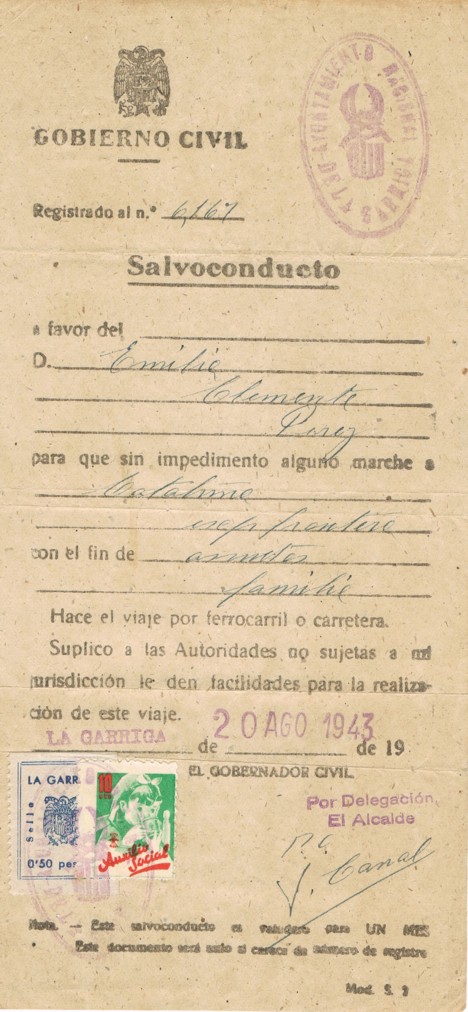 GOBIERNO CIVIL
AYUNTAMIENTO NACIONAL
DE LA GARRIGA
Registrado al n.º 6,167
Salvoconducto
a favor del
D. Emilio
Clemente
Perez
para que sin impedimento alguno marche a
Cataluña
excep frontera
con el fin de asuntos
familia
Hace el viaje por ferrocarril o carretera.
Suplico a las Autoridades no sujetas a mi
jurisdicción le den facilidades para la realiza-
ción de este viaje.
LA GARRIGA de 20 AGO 1943 de 19
EL GOBERNADOR CIVIL
Por Delegación
El Alcalde
P. A.
J. Canal
LA GARR
Sello
0'50 pe
10
Auxilio
Social
Nota. — Este salvoconducto es valedero para UN MES
Este documento será nulo si carece de número de registro
Mod. S. 2